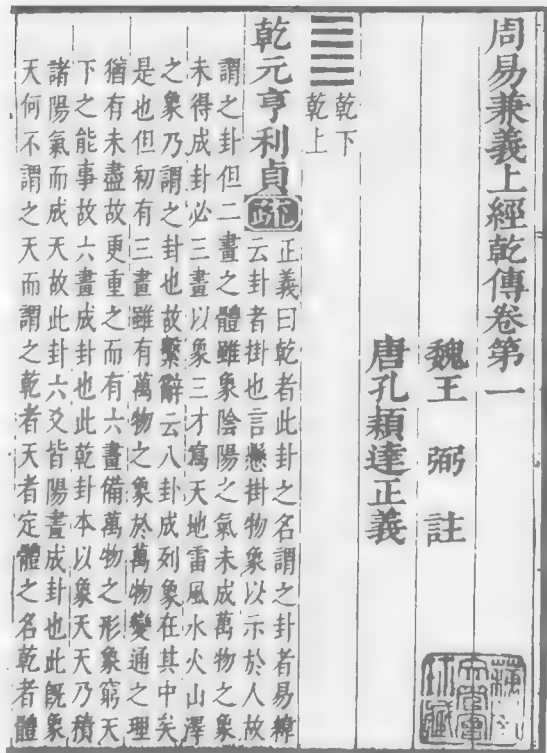 周易兼義上經乾傳卷第一
魏王弼註
唐孔穎達正義
乾下
乾上
乾元亨利貞疏正義曰乾者此卦之名謂之卦者易緯
云卦者掛也言懸掛物象以示於人故
謂之卦但二畫之體雖象陰陽之氣未成萬物之象
未得成卦必三畫以象三才寫天地雷風水火山澤
之象乃謂之卦也故繫辭云八卦成列象在其中矣
是也但初有三畫雖有萬物之象於萬物變通之理
猶有未盡故更重之而有六畫備萬物之形象窮天
下之能事故六畫成卦也此乾卦本以象天天乃積
諸陽氣而成天故此卦六爻皆陽畫成卦也此既象
天何不謂之天而謂之乾者天者定體之名乾者體